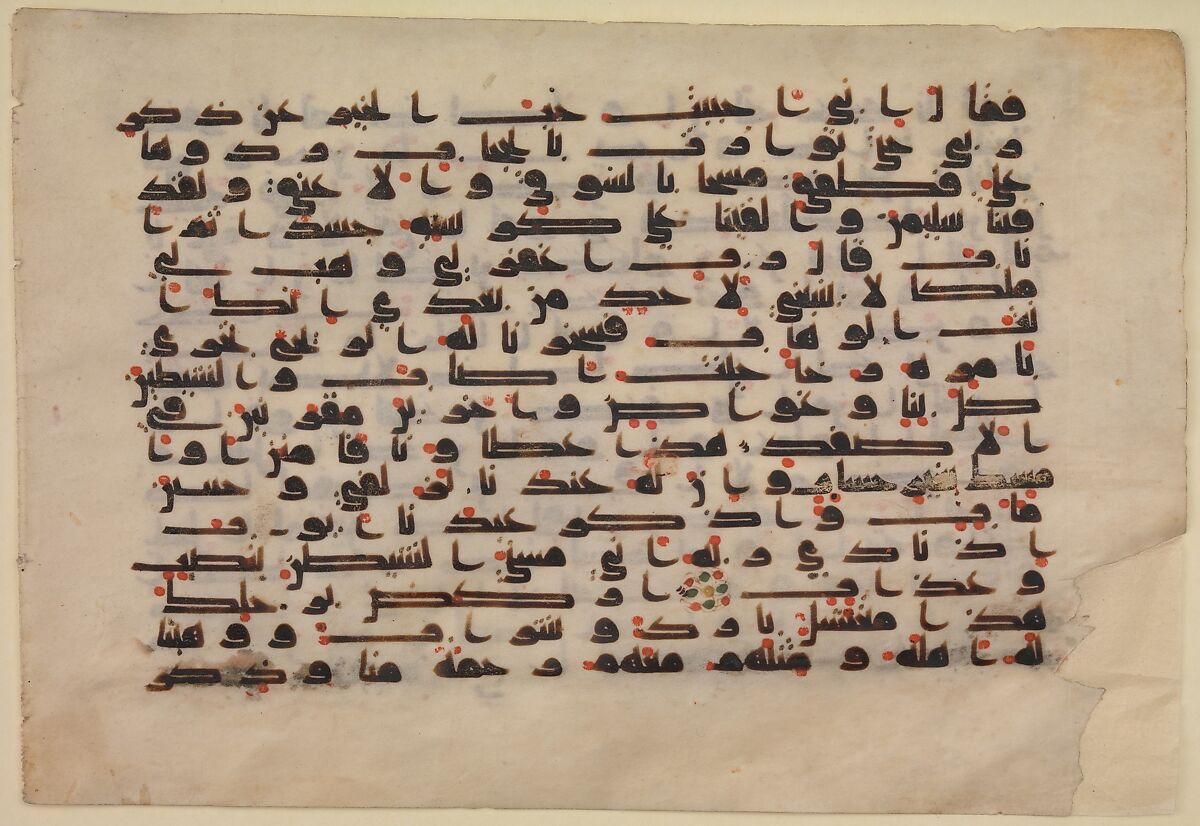 فقال اني احببت حب الخير عن ذكر
ربي حتى توارت بالحجاب ردوها
علي فطفق مسحا بالسوق والاعناق ولقد
فتنا سليمن والقينا على كرسيه جسدا ثم ا
ناب قال رب اغفر لي وهب لي
ملكا لا ينبغي لاحد من بعدي انك ا
نت الوهاب فسخرنا له الريح تجري
بامره رخا حيث اصاب والشيطين
كل بنا وغواص واخرين مقرنين في
الاصفاد هذا عطاونا فامنن او ا
مسك بغير حساب وان له عندنا لزلفى وحسن
ماب واذكر عبدنا ايوب
اذ نادى ربه اني مسني الشيطن بنصب
وعذاب اركض برجلك
هذا مغتسل بارد وشراب ووهبنا
له اهله ومثلهم معهم رحمة منا وذكر